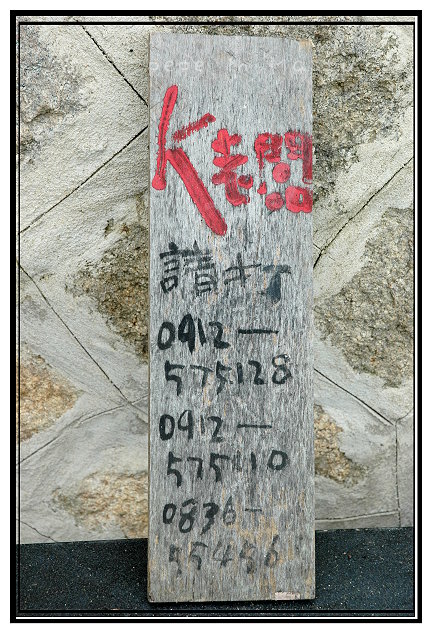 K老闆
請打
0912-
575128
0912-
575110
0836-